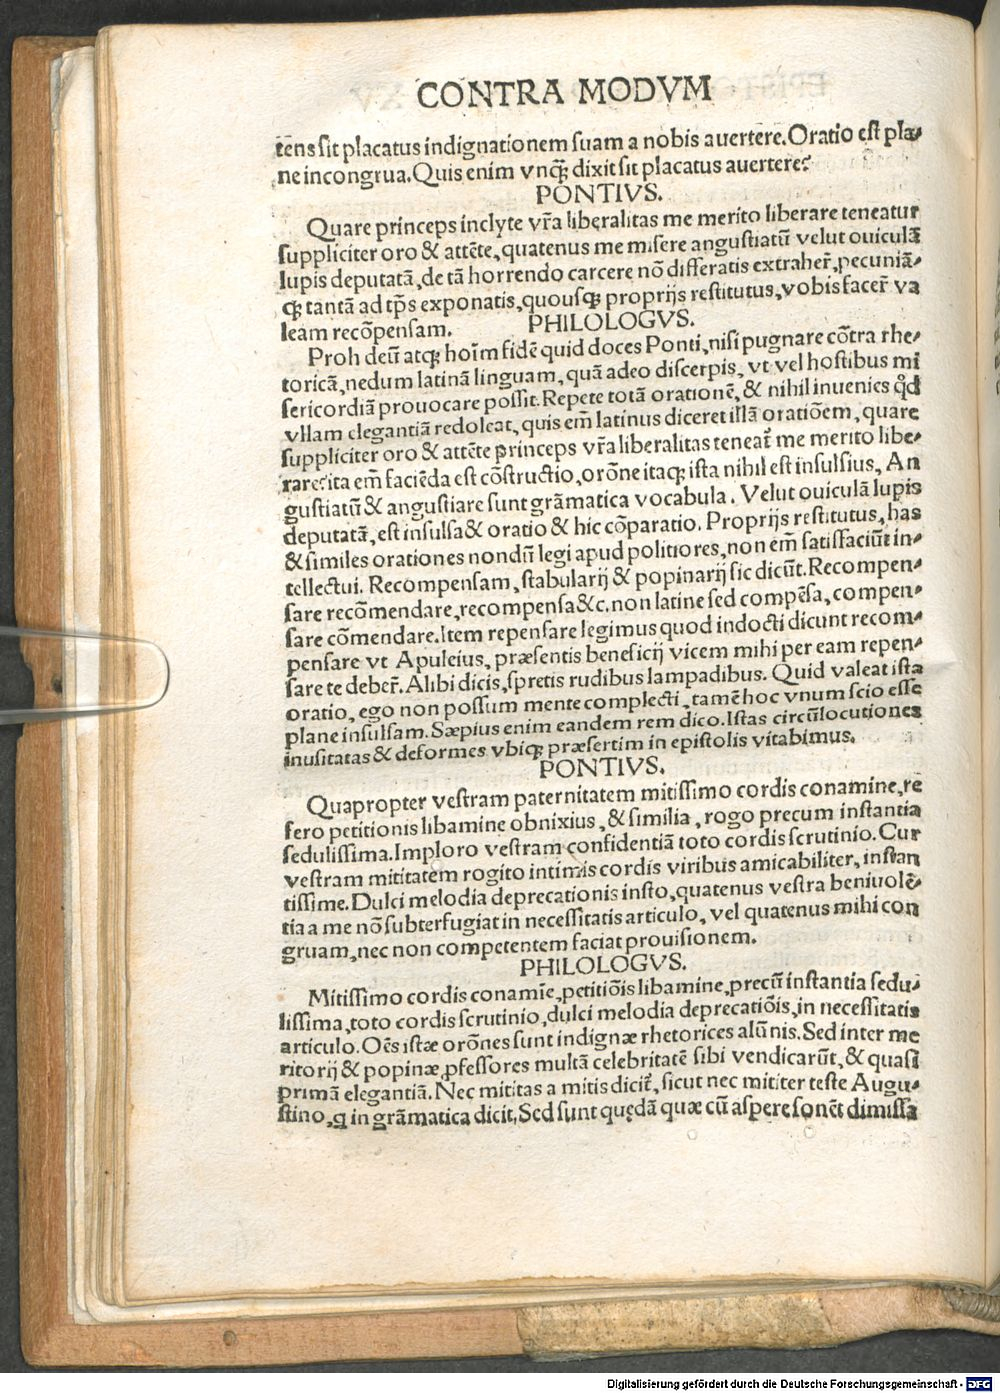 CONTRA MODVM
tẽns sit placatus indignationem suam a nobis auertere. Oratio est plæ-
ne incongrua. Quis enim vnqꝫ dixit sit placatus auertere?
PONTIVS.
Quare princeps inclyte vr̃a liberalitas me merito liberare teneatur
suppliciter oro & attẽte, quatenus me misere angustiatũ velut ouiculã
lupis deputatã, de tã horrendo carcere nõ differatis extraher̃, pecuniã-
qꝫ tantã ad tp̃s exponatis, quousqꝫ proprijs restitutus, vobis facer̃ va
leam recõpensam. PHILOLOGVS.
Proh deũ atqꝫ hoĩm fidẽ quid doces Ponti, nisi pugnare cõtra rhe-
toricã, nedum latinã linguam, quã adeo discerpis, vt vel hostibus mi
sericordiã prouocare possit. Repete totã orationẽ, & nihil inuenies qͦd
vllam elegantiã redoleat, quis em̃ latinus diceret illã oratiõem, quare
suppliciter oro & attẽte princeps vr̃a liberalitas teneat̃ me merito libe-
rare? ita em̃ faciẽda est cõstructio, orõne itaqꝫ ista nihil est insulsius, An
gustiatũ & angustiare sunt grãmatica vocabula. Velut ouiculã lupis
deputatã, est insulsa & oratio & hic cõparatio. Proprijs restitutus, has
& similes orationes nondũ legi apud politiores, non em̃ satisfaciũt in-
tellectui. Recompensam, stabularij & popinarij sic dicũt. Recompen-
sare recõmendare, recompensa &c. non latine sed compẽsa, compen-
sare cõmendare. Item repensare legimus quod indocti dicunt recom-
pensare vt Apuleius, præsentis beneficij vicem mihi per eam repen-
sare te deber̃. Alibi dicis, spretis rudibus lampadibus. Quid valeat ista
oratio, ego non possum mente complecti, tamẽ hoc vnum scio esse
plane insulsam. Sæpius enim eandem rem dico. Istas circũlocutiones
inusitatas & deformes vbiqꝫ præsertim in epistolis vitabimus.
PONTIVS.
Quapropter vestram paternitatem mitissimo cordis conamine, re
fero petitionis libamine obnixius, & similia, rogo precum instantia
sedulissima. Imploro vestram confidentiã toto cordis scrutinio. Cur
vestram mititatem rogito intimis cordis viribus amicabiliter, instan
tissime. Dulci melodia deprecationis insto, quatenus vestra beniuolẽ-
tia a me nõ subterfugiat in necessitatis articulo, vel quatenus mihi con
gruam, nec non competentem faciat prouisionem.
PHILOLOGVS.
Mitissimo cordis conamĩe, petitiõis libamine, precũ instantia sedu-
lissima, toto cordis scrutinio, dulci melodia deprecatiõis, in necessitatis
articulo. Oẽs istæ orõnes sunt indignæ rhetorices alũnis. Sed inter me
ritorij & popinæ ꝓfessores multã celebritatẽ sibi vendicarũt, & quasi
primã elegantiã. Nec mititas a mitis dicit̃, sicut nec mititer teste Augu-
stino, q̃ in grãmatica dicit, Sed sunt quędã quæ cũ aspere sonẽt dimissa
Digitalisierung gefördert durch die Deutsche Forschungsgemeinschaft - DFG